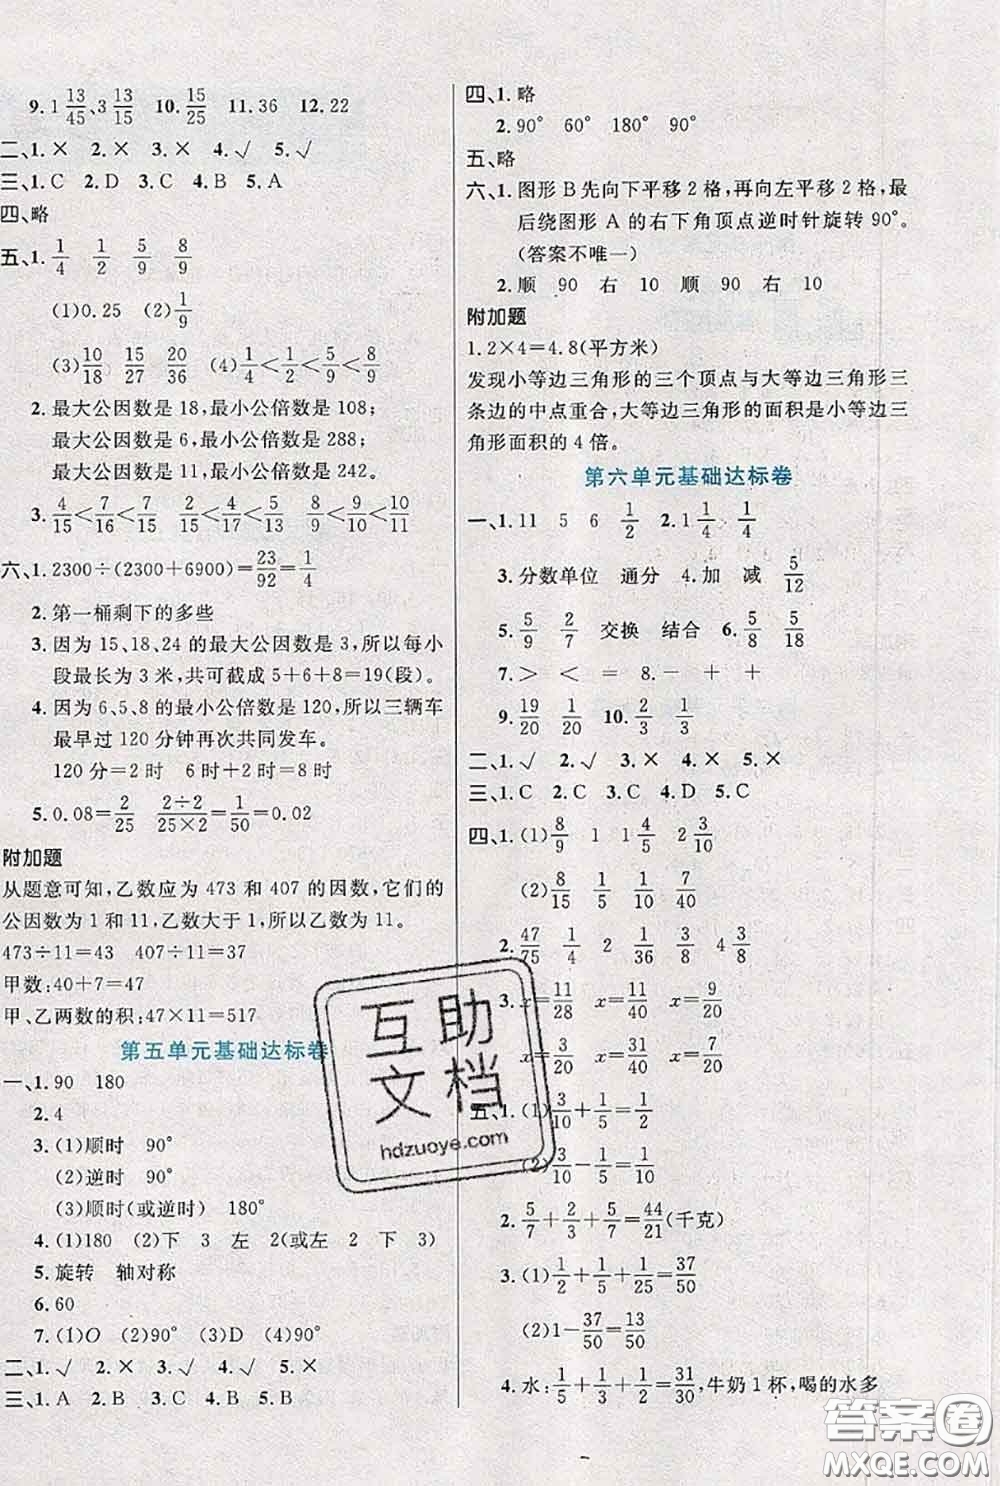 9. 1 13/45、3 13/15 10. 15/25 11. 36 12. 22
二、1. × 2. × 3. × 4. √ 5. √
三、1. C 2. D 3. C 4. B 5. A
四、略
五、1. 1/4 1/2 5/9 8/9
(1)0.25 (2)1/9
(3)10/18 15/27 20/36 (4)1/4<1/2<5/9<8/9
2. 最大公因数是 18,最小公倍数是 108;
最大公因数是 6,最小公倍数是 288;
最大公因数是 11,最小公倍数是 242。
3. 4/15<7/16<7/15 5/9<9/10<10/11
六、1. 2300÷(2300+6900)=23/92=1/4
2. 第一桶剩下的多些
3. 因为 15、18、24 的最大公因数是 3,所以每小
段最长为 3 米,共可截成 5+6+8=19(段)。
4. 因为 6、5、8 的最小公倍数是 120,所以三辆车
最早过 120 分钟再次共同发车。
120 分=2 时 6 时+2 时=8 时
5. 0.08=2/25 2÷2/25×2=1/50=0.02
附加题
从题意可知,乙数应为 473 和 407 的因数,它们的
公因数为 1 和 11,乙数大于 1,所以乙数为 11。
473÷11=43 407÷11=37
甲数:40+7=47
甲、乙两数的积:47×11=517
第五单元基础达标卷
一、1. 90 180
2. 4
3. (1)顺时 90°
(2)逆时 90°
(3)顺时(或逆时) 180°
4. (1)180 (2)下 3 左 2(或左 2 下 3)
5. 旋转 轴对称
6. 60
7. (1)O (2)90° (3)D (4)90°
二、1. √ 2. × 3. × 4. √ 5. ×
三、1. A 2. B 3. C 4. B 5. B
四、1. 略
2. 90° 60° 180° 90°
五、略
六、1. 图形 B 先向下平移 2 格,再向左平移 2 格,最
后绕图形 A 的右下角顶点逆时针旋转 90°。
(答案不唯一)
2. 顺 90 右 10 顺 90 右 10
附加题
1.2×4=4.8(平方米)
发现小等边三角形的三个顶点与大等边三角形三
条边的中点重合,大等边三角形的面积是小等边三
角形面积的 4 倍。
第六单元基础达标卷
一、1. 11 5 6 1/2 2. 1 1/4 1/4
3. 分数单位 通分 4. 加 减 5/12
5. 5/9 2/7 交换 结合 6. 5/8 5/18
7. > < = 8. - + +
9. 19/20 1/20 10. 2/3 1/3
二、1. √ 2. √ 3. × 4. × 5. ×
三、1. C 2. C 3. C 4. D 5. C
四、1. (1)8/9 1 1 4/5 2 3/10
(2)8/15 1/5 1/8 7/40
2. 47/75 1/4 2 1/36 3/8 4 3/8
3. x=11/28 x=11/40 x=9/20
x=3/20 x=31/40 x=6/35
五、1. (1)3/10+1/5=1/2
(2)3/10-1/5=1/10
2. 5/7+2/3+5/7=44/21(千克)
3. (1)1/2+1/5+1/25=37/50
(2)1-37/50=13/50
4. 水:1/5+1/3+1/2=31/30,牛奶 1 杯,喝的水多
互助
文档
hdzuoye.com
答案圈
MXQE.COM